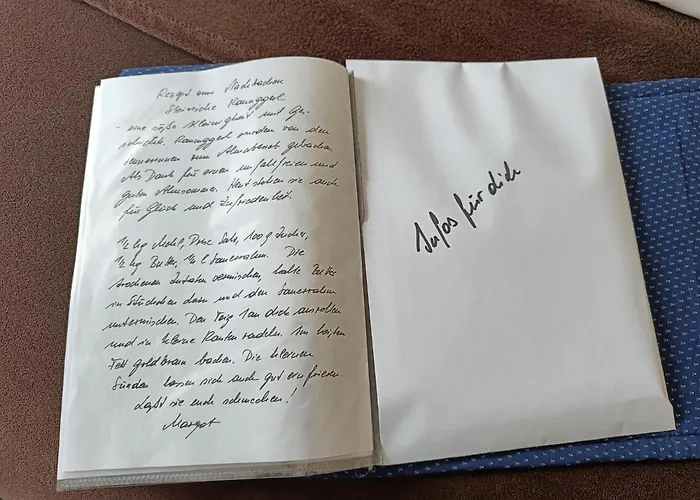 Rezept zum Nachbachen
Steirische Raunggerl
- eine süße Kleinigkeit mit Ge-
schichte. Raunggerl wurden von den
Sennerinnen zum Almabtrieb gebachen
Als Dank für einen unfallfreien und
guten Almsommer. Heut stehen sie auch
für Glück und Zufriedenheit.
1/2 kg Mehl, Prise Salz, 100 g Zucker,
1/2 kg Butter, 1/2 l Sauerrahm. Die
trockenen Zutaten vermischen, kalte Butter
in Stückchen dazu und den Sauerrahm
untermischen. Den Teig 1cm dick ausrollen
und in kleine Rauten radeln. Im heißen
Fett goldbraun backen. Die kleinen
Sünden lassen sich auch gut einfrieren.
Laßt sie euch schmecken!
Margot
Infos für dich